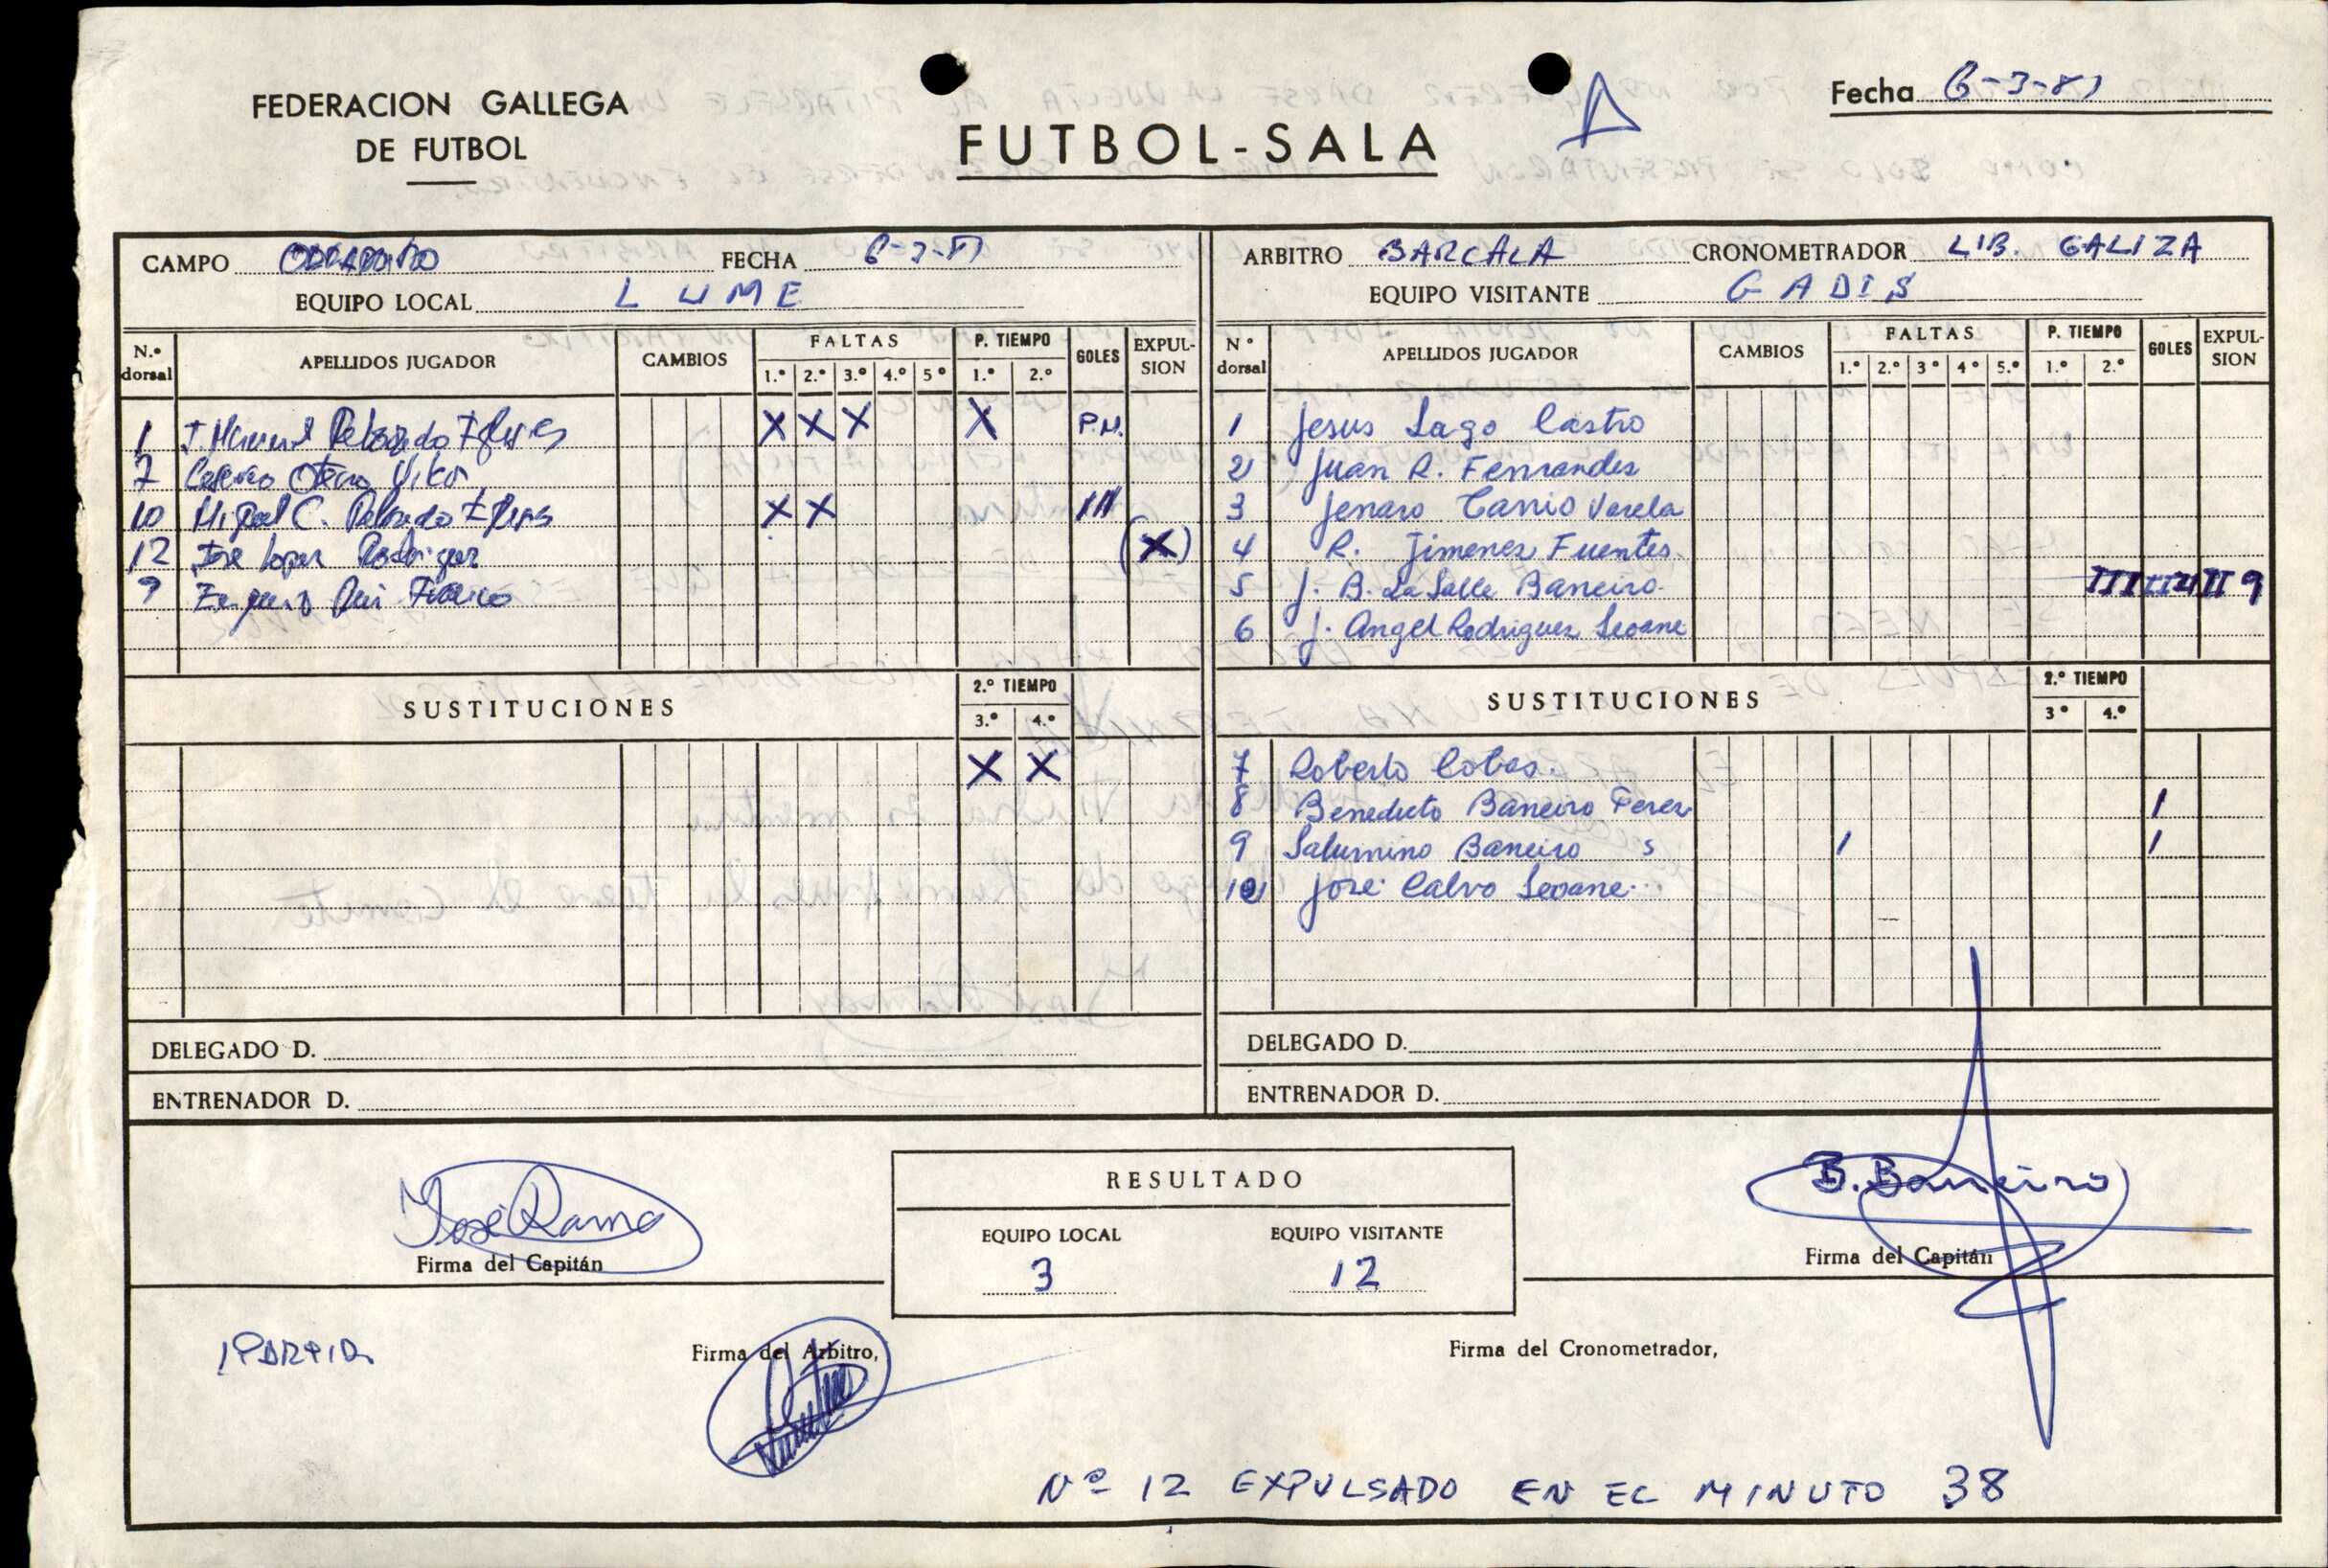 FEDERACION GALLEGA
DE FUTBOL
FUTBOL-SALA
Fecha 6-3-81
CAMPO FECHA 6-3-81
EQUIPO LOCAL LUME
ARBITRO BARCALA CRONOMETRADOR LIB. GALIZA
EQUIPO VISITANTE GADIS
N.º dorsal APELLIDOS JUGADOR CAMBIOS FALTAS 1.º 2.º 3.º 4.º 5º P. TIEMPO 1.º 2.º GOLES EXPULSION
1 J. Manuel X X X X P.N.
7 Otero
10 Miguel C. X X III
12 Jose Lopez Rodriguez (X)
9
SUSTITUCIONES 2.º TIEMPO 3.º 4.º
X X
DELEGADO D.
ENTRENADOR D.
Nº dorsal APELLIDOS JUGADOR CAMBIOS FALTAS 1.º 2.º 3º 4º 5.º P. TIEMPO 1.º 2.º GOLES EXPULSION
1 Jesus Lago Castro
2 Juan R. Fernandez
3 Jenaro Varela
4 R. Jimenez Fuentes
5 J. B. La Salle Baneiro 9
6 J. Angel Rodriguez Seoane
SUSTITUCIONES 2.º TIEMPO 3º 4.º
7 Roberto Cobas.
8 Benedicto Baneiro Perez I
9 Saturnino Baneiro S I I
10 Jose Calvo Seoane
DELEGADO D.
ENTRENADOR D.
José Ramo
Firma del Capitán
RESULTADO
EQUIPO LOCAL EQUIPO VISITANTE
3 12
B. Baneiro
Firma del Capitán
Firma del Arbitro,
Firma del Cronometrador,
Nº 12 EXPULSADO EN EL MINUTO 38